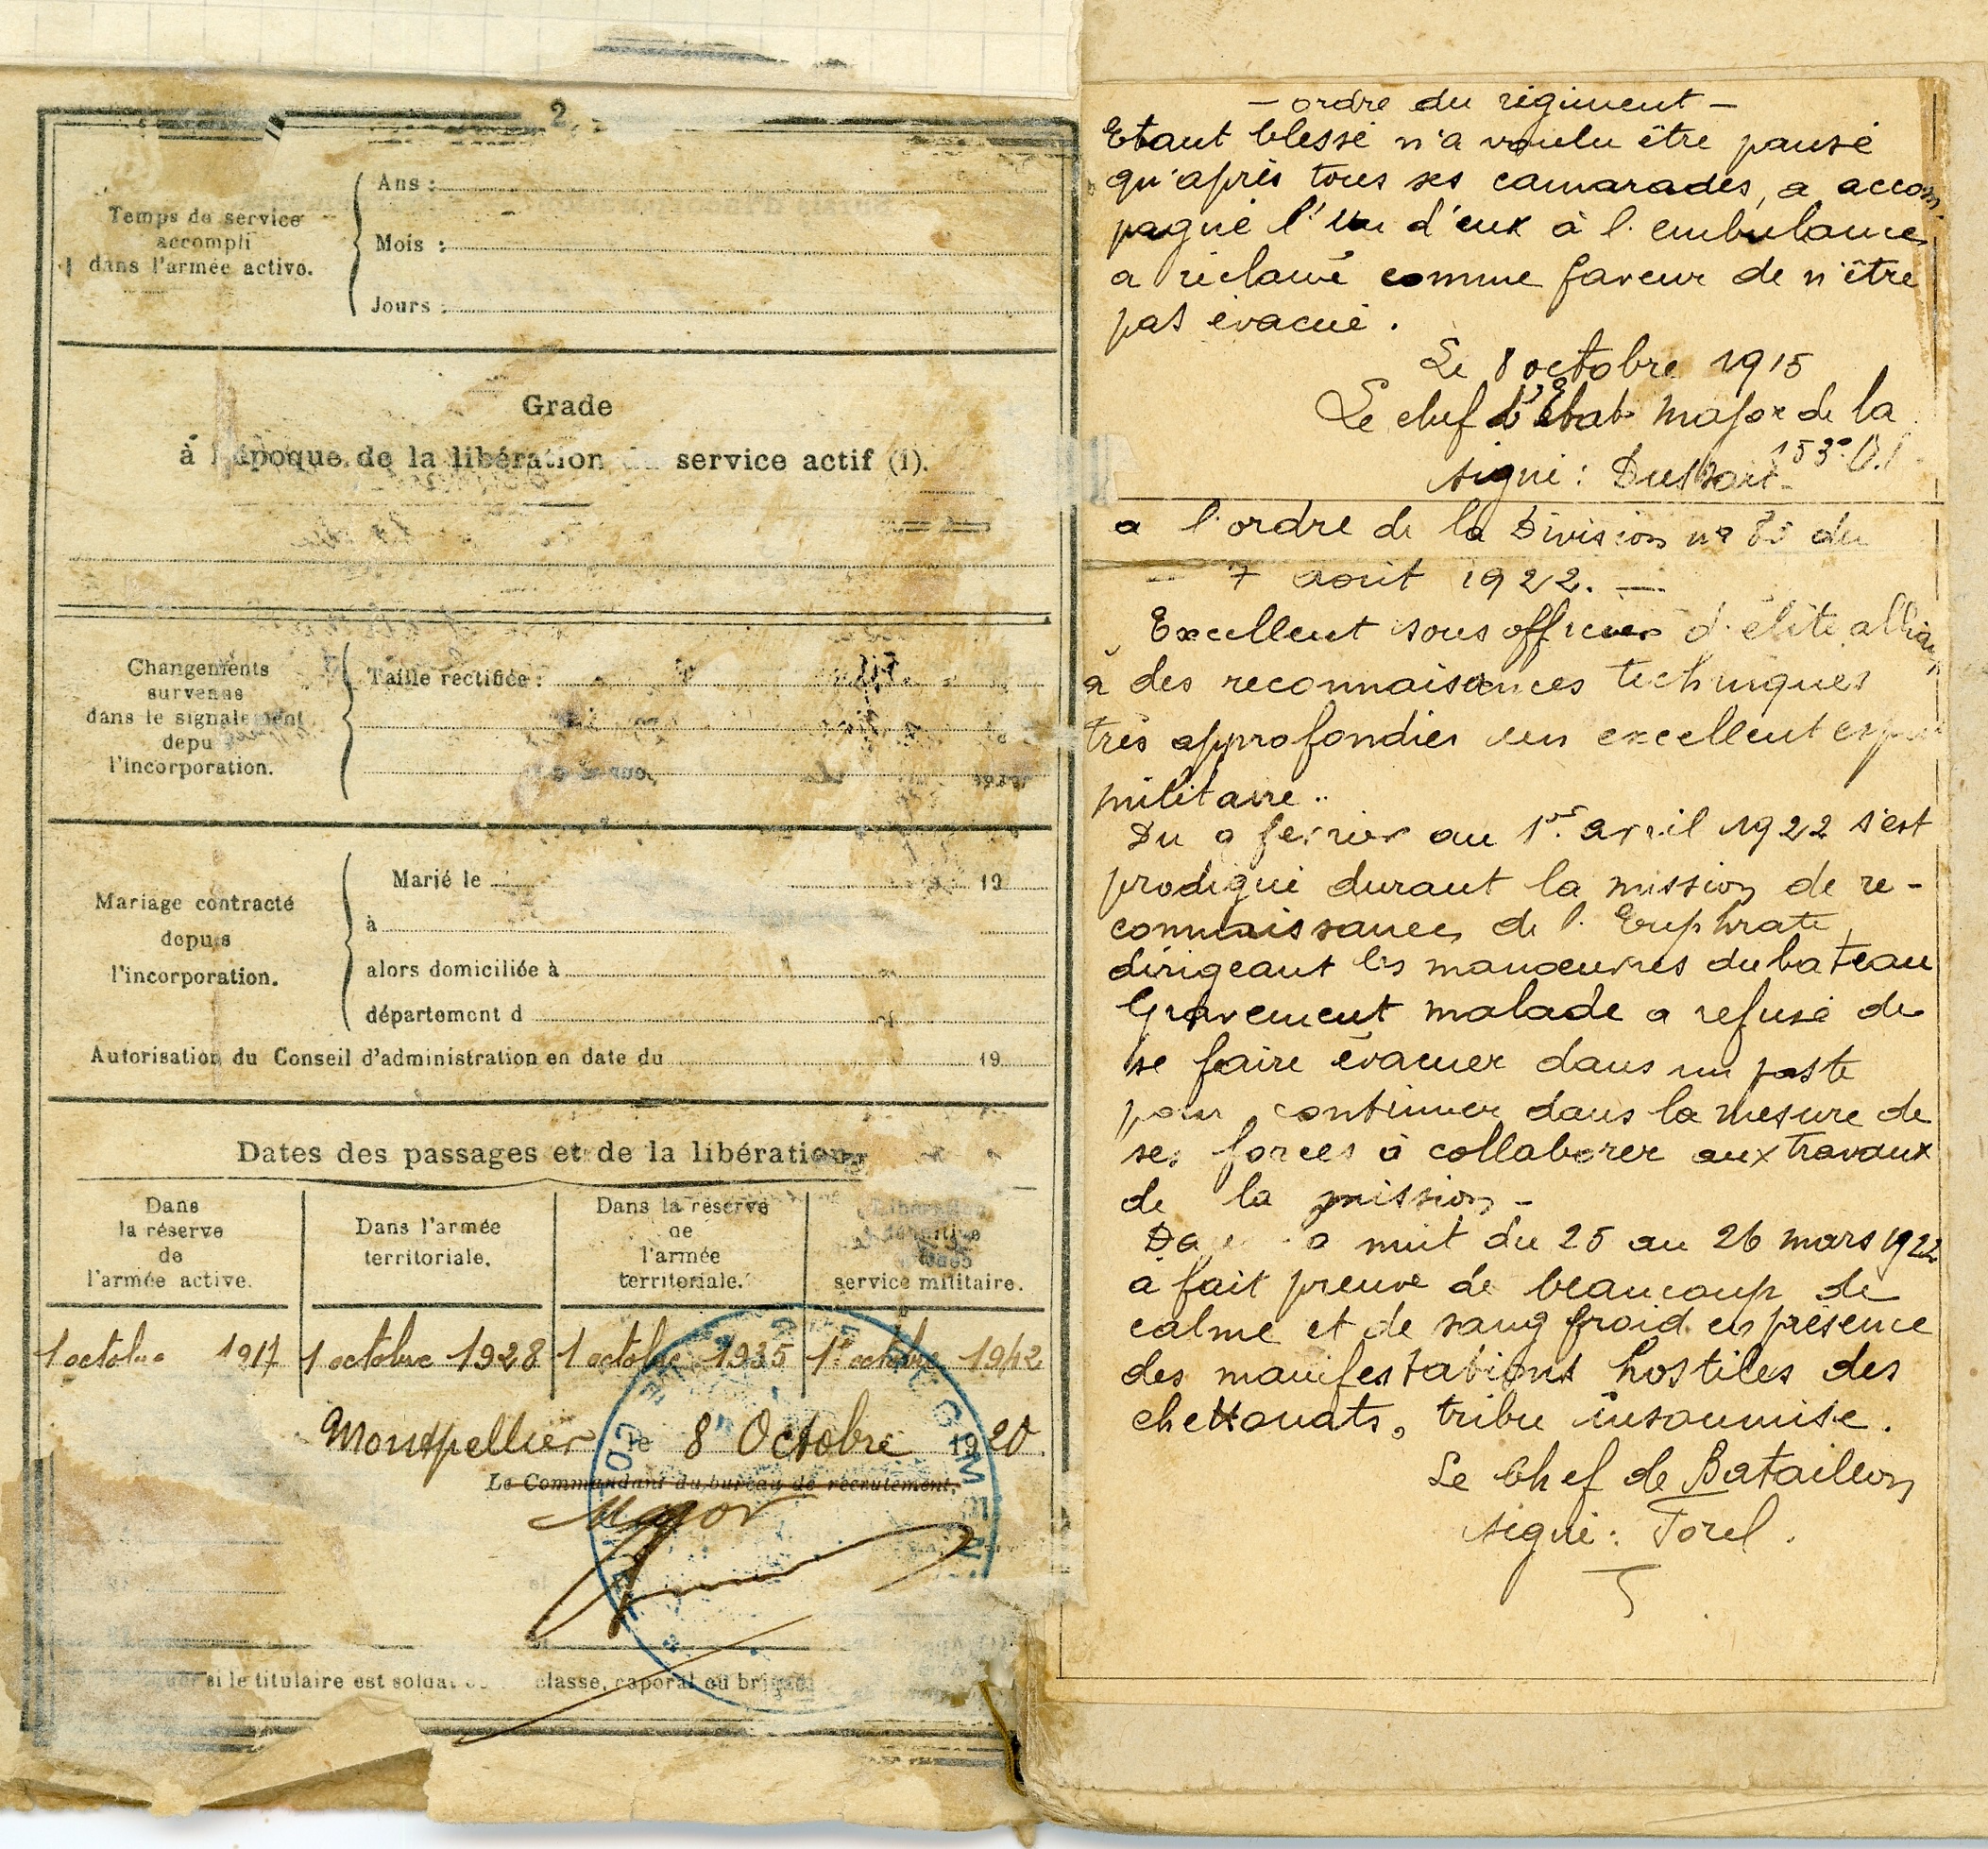 2
Temps de service
accompli
dans l'armée active.
Ans :
Mois :
Jours :
Grade
à l'époque de la libération du service actif (1).
Changements
survenus
dans le signalement
depuis
l'incorporation.
Taille rectifiée :
Mariage contracté
depuis
l'incorporation.
Marié le 19
à
alors domiciliée à
département d
Autorisation du Conseil d'administration en date du 19
Dates des passages et de la libération
Dans
la réserve
de
l'armée active.
Dans l'armée
territoriale.
Dans la réserve
de
l'armée
territoriale.
service militaire.
1 octobre 1917
1 octobre 1928
1 octobre 1935
1er octobre 1942
Montpellier le 8 Octobre 1920
Le Commandant du bureau de recrutement,
Major
si le titulaire est soldat classe, caporal ou brigad
- ordre du régiment -
Etant blessé n'a voulu être pansé
qu'après tous ses camarades, a accom-
pagné l'un d'eux à l'embulance
a réclamé comme faveur de n'être
pas évacué.
Le 8 octobre 1915
Le chef d'Etat Major de la
153e D.I
signé : Dussart
a l'ordre de la Division no 80 du
7 aout 1922. —
Excellent sous officier d'élite alliant
à des reconnaisances techniques
très approfondies un excellent esprit
militaire..
Du 9 fevrier au 1er avril 1922 s'est
prodigué durant la mission de re-
connaissance de l'Euphrate
dirigeant les manœuvres du bateau
Gravement malade a refusé de
se faire évacuer dans un poste
pour continuer dans la mesure de
ses forces à collaborer aux travaux
de la mission -
Da a nuit du 25 au 26 mars 1922
à fait preuve de beaucoup de
calme et de sang froid en présence
des manifestations hostiles des
chettouats, tribu insoumise.
Le Chef de Bataillon
signé : Torel.